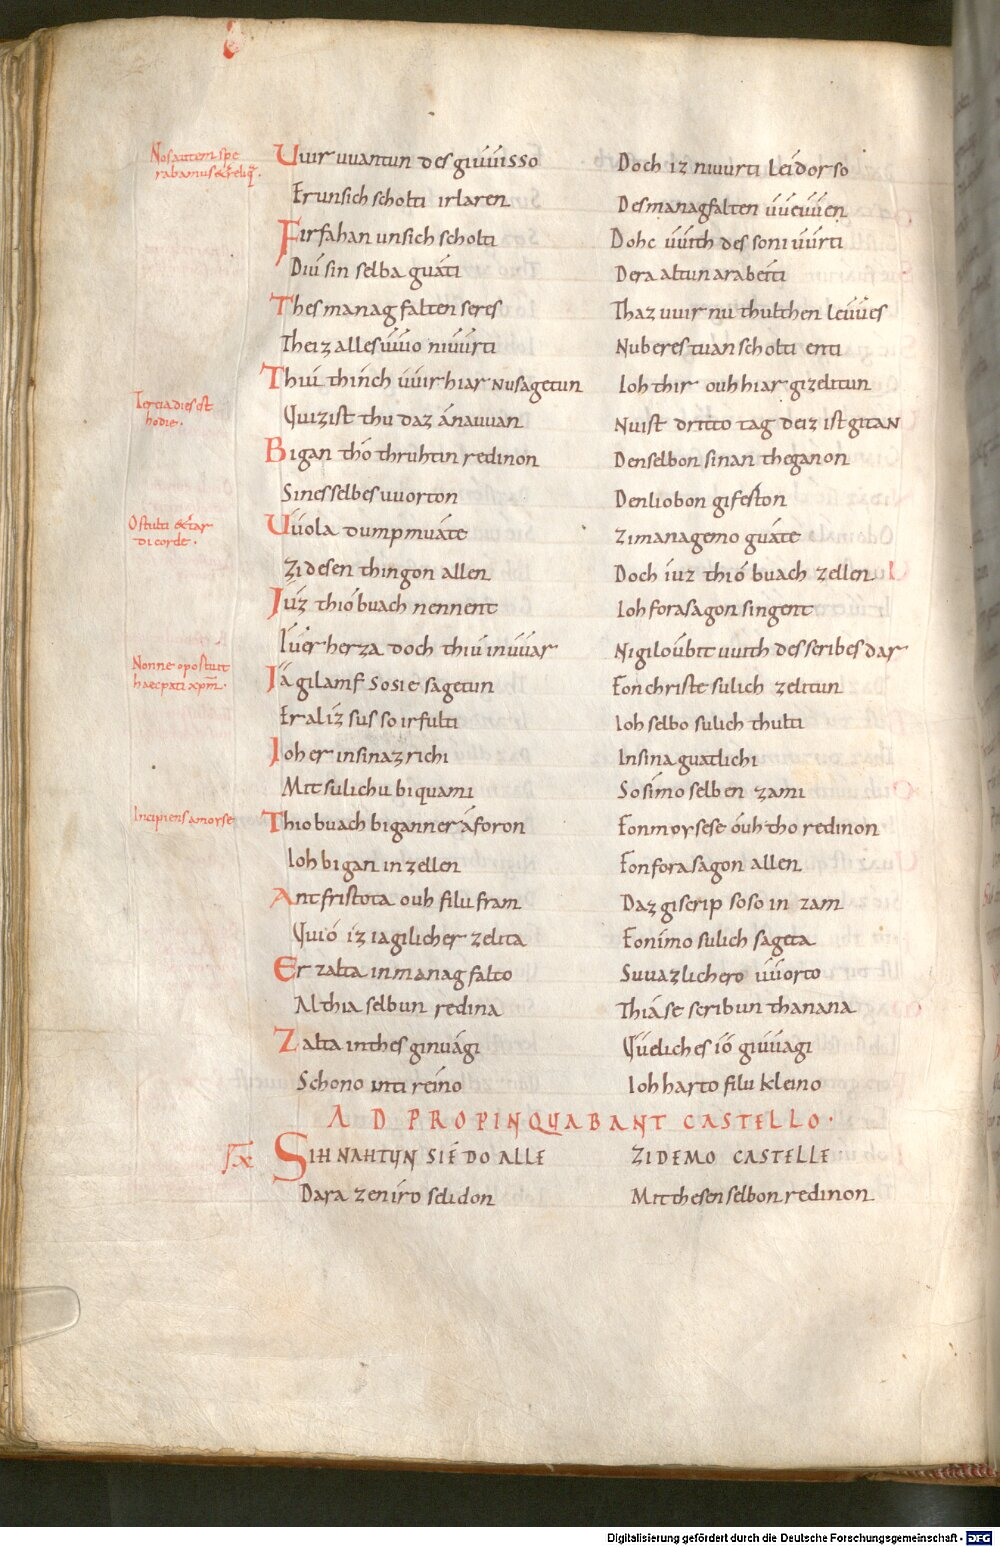 Nos autem spe
rabamus & reliq.
Uuir uuantun des giuuisso Doch iz niuurti leidor so
Er unsich scholti irlaren Des managfalten uueuuen
Firfahan unsich scholti Dohc uuith des soni uurti
Diu sin selba guati Dera altun arabeiti
Thes managfalten seres Thaz uuir nu thulthen leuues
Theiz alles uuio niuurti Nub er es tuan scholti enti
Thuí thinch uuir hiar nu sagetun Ioh thir ouh hiar gizelitun
Tertia dies est
hodie.
Quiz ist thu daz ánauuan Nu ist dritto tag deiz ist gitan
Bigan thó thruhtin redinon Den selbon sinan theganon
Sines selbes uuorton Den liobon gifeston
O stulti & tar
di corde.
Uuola dumpmuate Zi managemo guate
Zi desen thingon allen Doch iuz thió buach zellen
Iúz thió buach nennent Ioh forasagon singent
Iuer herza doch thiu in uuar Ni giloubit uuith des scribes dar
Nonne oportuit
haec pati xpm.
Iá gilamf so sie sagetun Fon christe sulich zelitun
Er al iz sus so irfulti Ioh selbo sulich thulti
Ioh er in sinaz richi In sina guatlichi
Mit sulichu biquami So simo selben zami
Incipiens a moyse
Thio buach biganner áforon Fon moysese óuh tho redinon
Ioh bigan in zellen Fon forasagon allen
Antfristota ouh filu fram Daz giscrip soso in zam
Quió iz iagilicher zelita Fon imo sulich sageta
Er zalta in managfalto Suuazlichero uuorto
Al thia selbun redina Thiá se scribun thanana
Zalta in thes ginuági Queliches ió giuuagi
Schono inti reino Ioh harto filu kleino
ADPROPINQUABANT CASTELLO.
SIH NAHTUN SIÉ DO ALLE ZI DEMO CASTELLE
Dara zen iro selidon Mit thesen selbon redinon
Digitalisierung gefördert durch die Deutsche Forschungsgemeinschaft - DFG